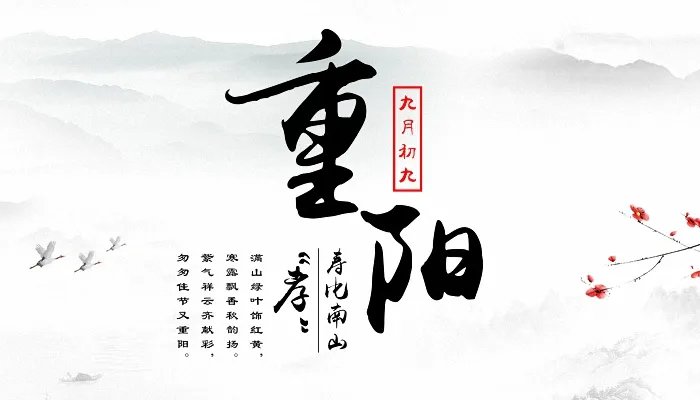 重阳
九月初九
寿比南山
“孝”
满山绿叶饰红黄，
寒露飘香秋韵扬。
紫气祥云齐献彩，
匆匆佳节又重阳。